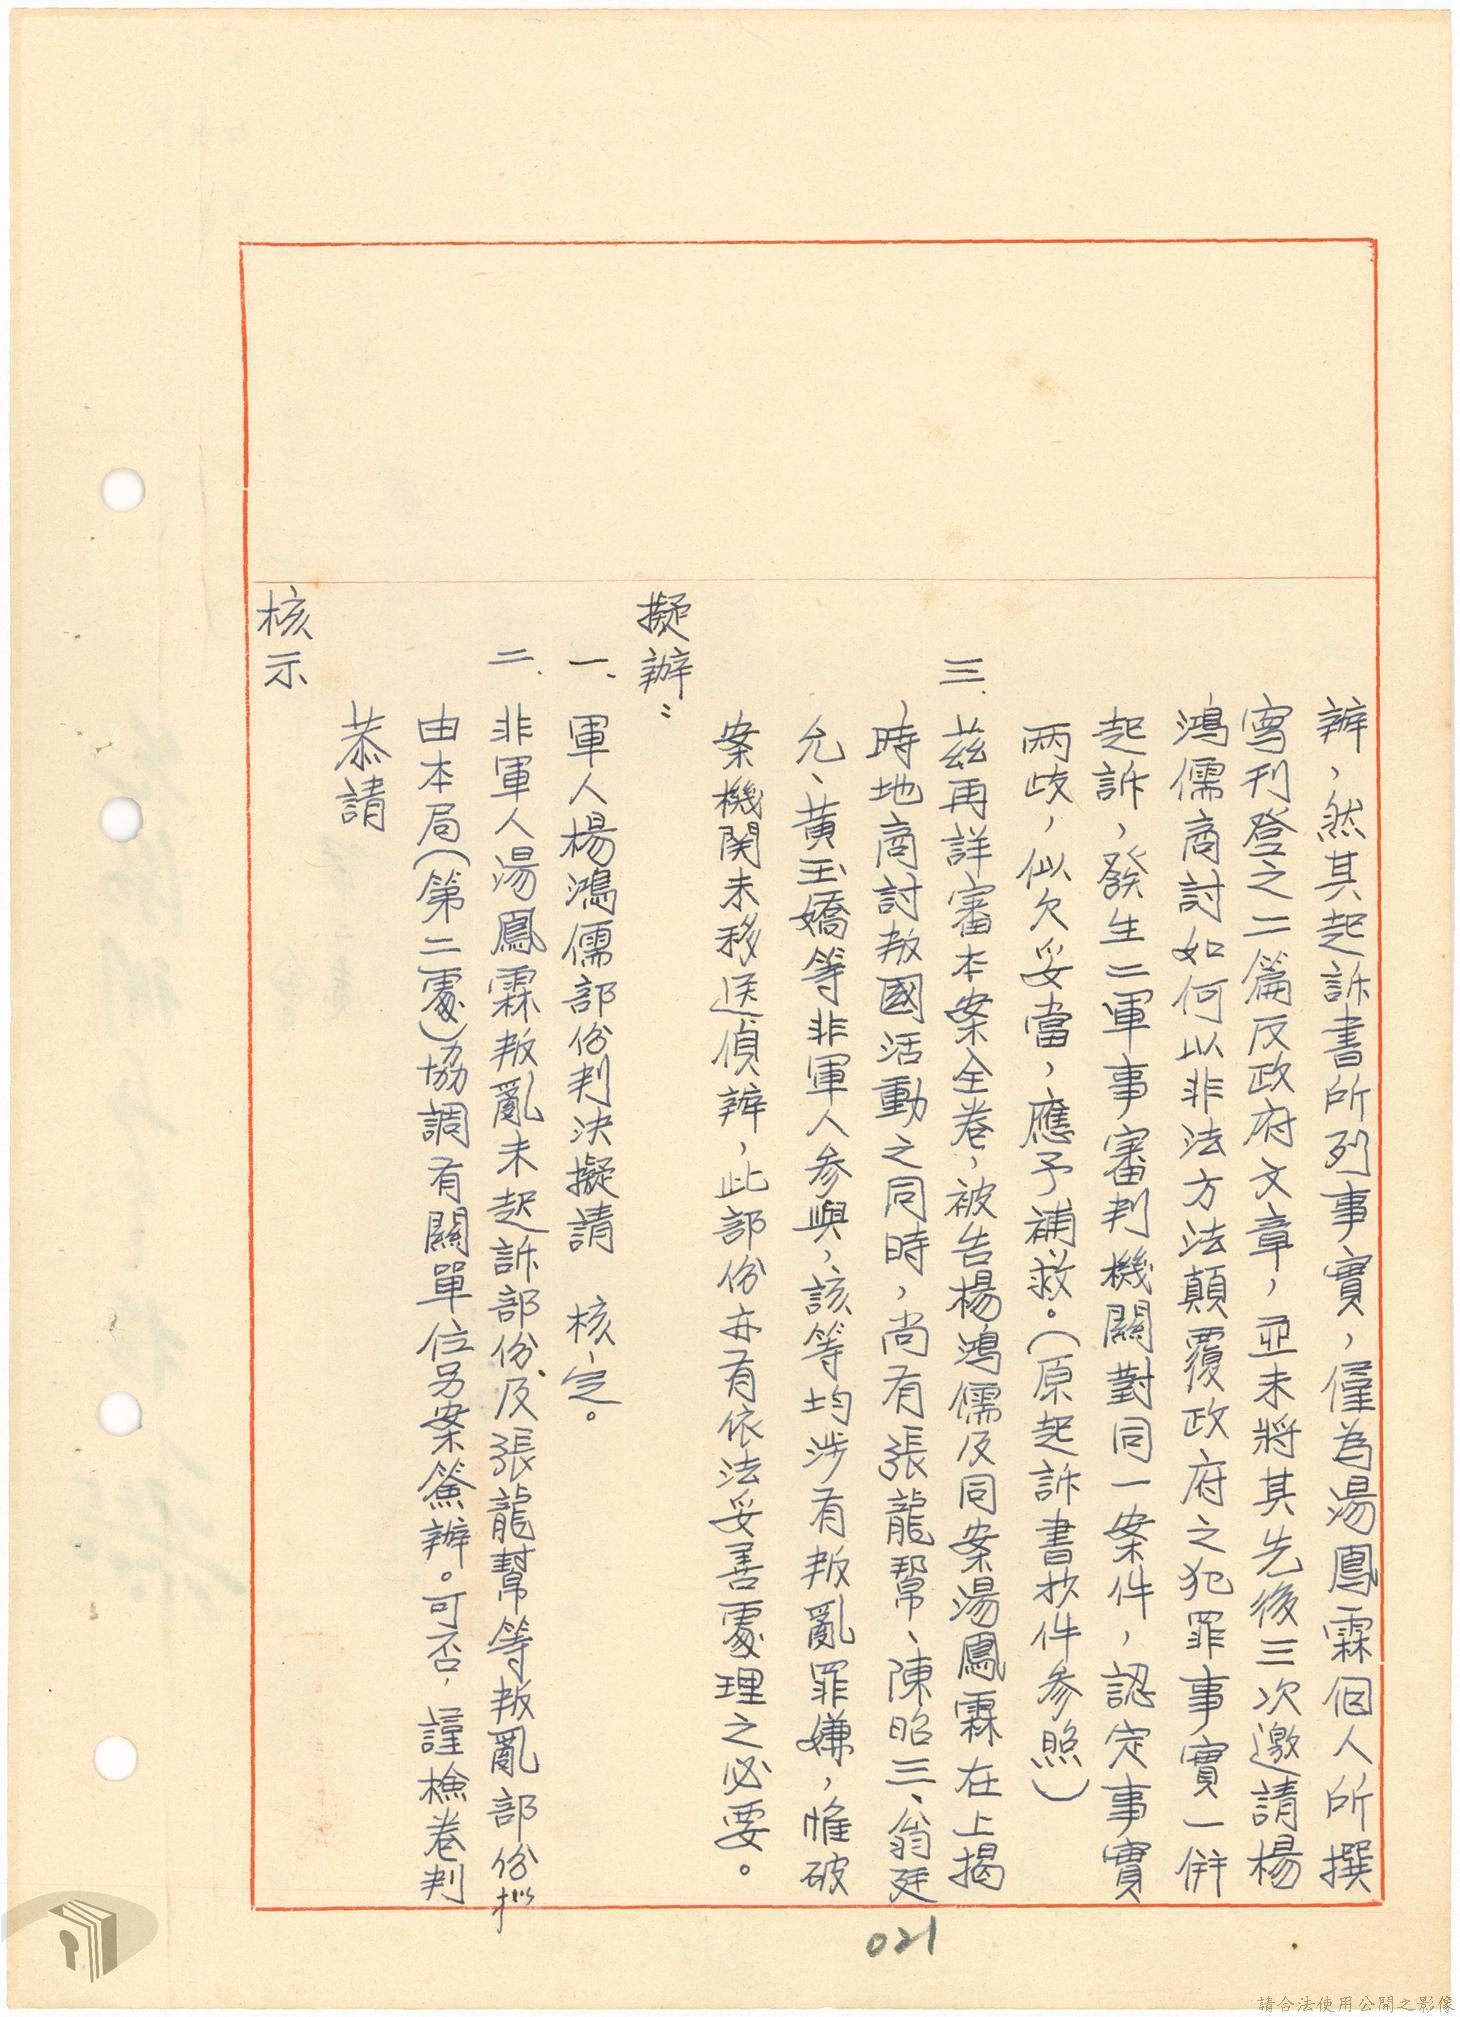 辦，然其起訴書所列事實，僅為湯鳳霖個人所撰
寫刊登之二篇反政府文章，並未將其先後三次邀請楊
鴻儒商討如何以非法方法顛覆政府之犯罪事實一併
起訴，發生二軍事審判機關對同一案件，認定事實
兩歧，似欠妥當，應予補救。（原起訴書抄件參照）
三、茲再詳審本案全卷，被告楊鴻儒及同案湯鳳霖在上揭
時地商討叛國活動之同時，尚有張龍幫、陳昭三、翁廷
允、黃玉嬌等非軍人參與，該等均涉有叛亂罪嫌，惟破
案機関未移送偵辦，此部份亦有依法妥善處理之必要。
擬辦：
一、軍人楊鴻儒部份判決擬請 核定。
二、非軍人湯鳳霖叛亂未起訴部份及張龍幫等叛亂部份擬
由本局（第二處）協調有關單位另案簽辦。可否，謹檢卷判
恭請
核示
021
請合法使用公開之影像